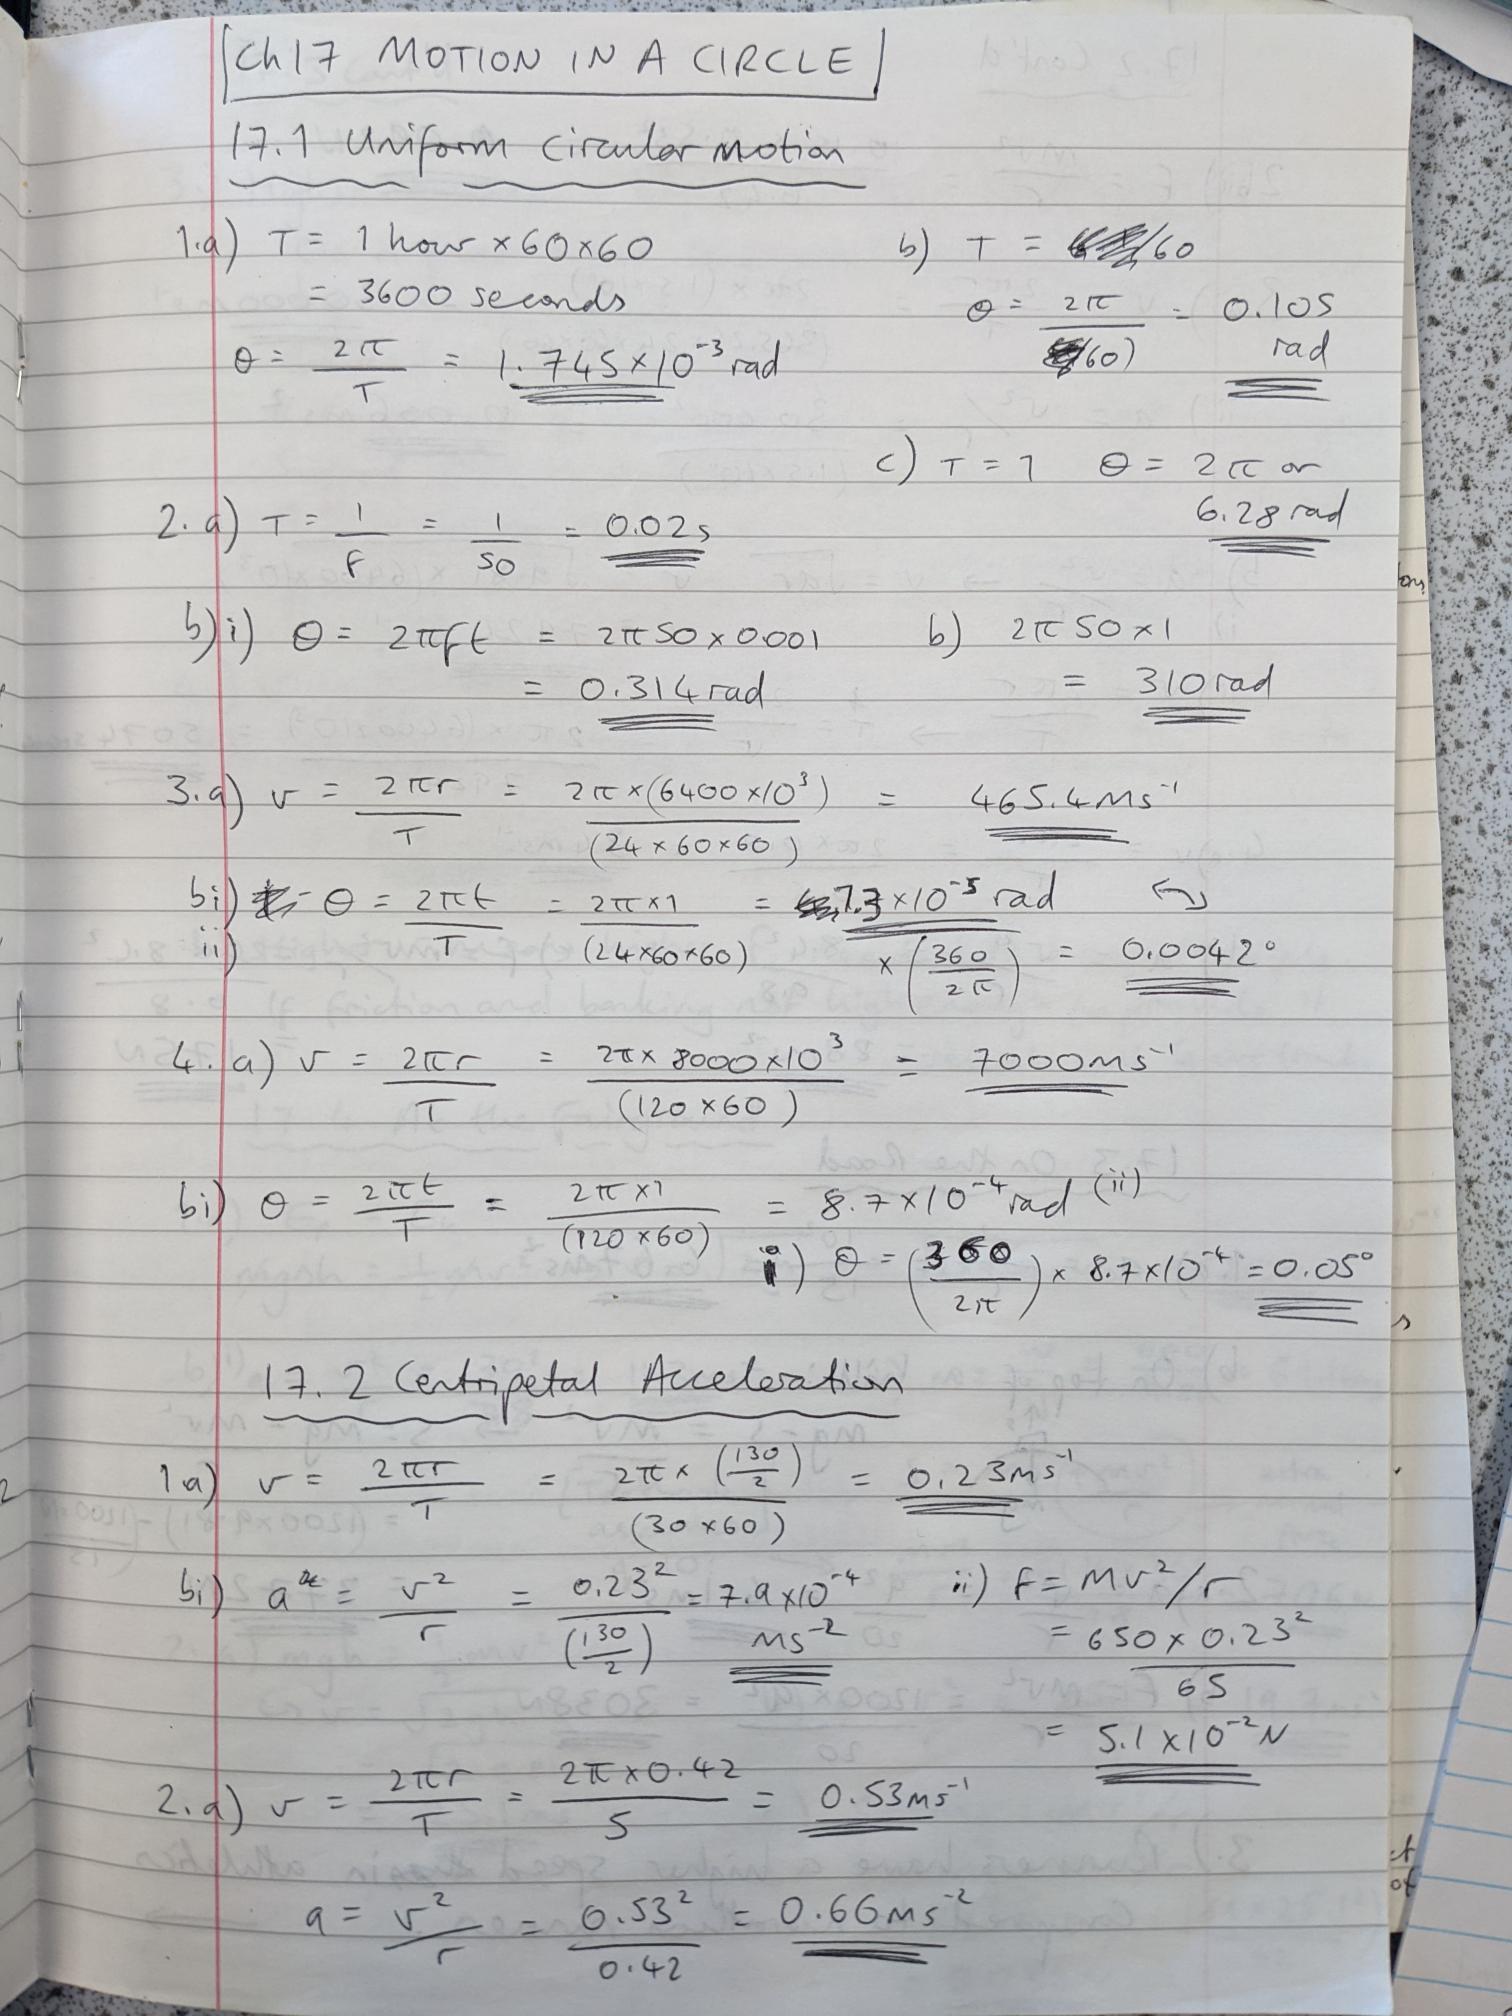 Ch17 MOTION IN A CIRCLE
17.1 Uniform Circular Motion
1.a) T = 1 hour × 60 × 60
= 3600 seconds
θ = 2π/T = 1.745 × 10⁻³ rad
b) T = 60
θ = 2π/60) = 0.105
rad
c) T = 1 θ = 2π or
6.28 rad
2.a) T = 1/f = 1/50 = 0.02s
b)i) θ = 2πft = 2π 50 × 0.001
= 0.314 rad
b) 2π 50 × 1
= 310 rad
3.a) v = 2πr/T = 2π × (6400 × 10³)/(24 × 60 × 60) = 465.4 ms⁻¹
bi) θ = 2πt/T = 2π × 1/(24 × 60 × 60) = 7.3 × 10⁻⁵ rad
ii) × (360/2π) = 0.0042°
4. a) v = 2πr/T = 2π × 8000 × 10³/(120 × 60) = 7000 ms⁻¹
bi) θ = 2πt/T = 2π × 1/(120 × 60) = 8.7 × 10⁻⁴ rad (ii)
i) θ = (360/2π) × 8.7 × 10⁻⁴ = 0.05°
17.2 Centripetal Acceleration
1a) v = 2πr/T = 2π × (130/2)/(30 × 60) = 0.23 ms⁻¹
bi) a = v²/r = 0.23²/(130/2) = 7.9 × 10⁻⁴
ms⁻²
ii) F = mv²/r
= 650 × 0.23²/65
= 5.1 × 10⁻² N
2.a) v = 2πr/T = 2π × 0.42/5 = 0.53 ms⁻¹
a = v²/r = 0.53²/0.42 = 0.66 ms⁻²